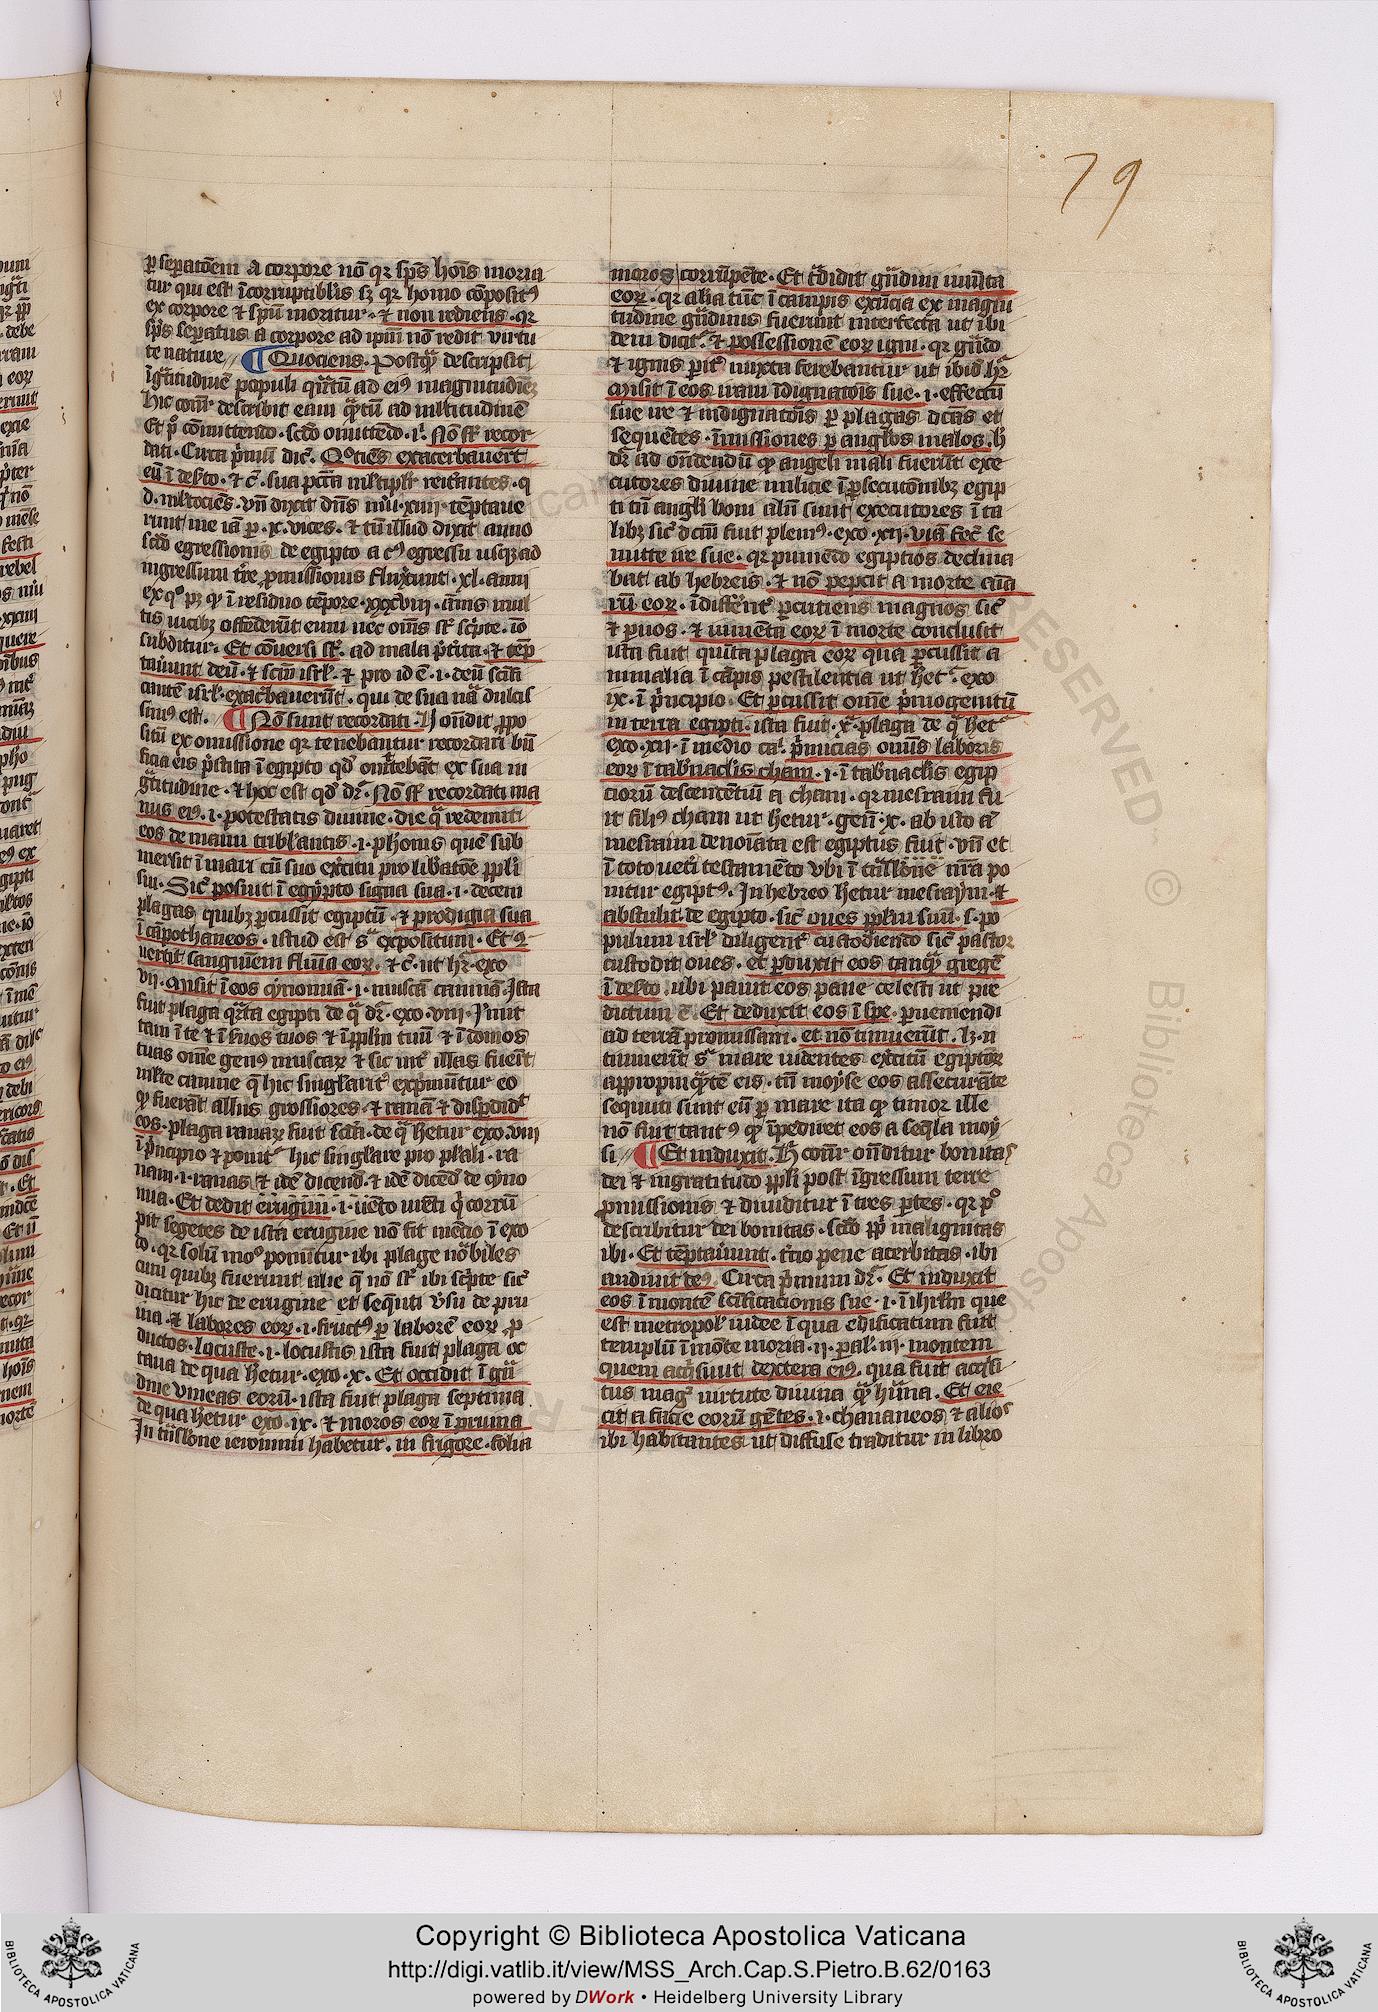 79
p̱ seꝑatōem a corpore nō qꝛ sp̄s hoīs moria
tur qui est īcorruptiblis sꝫ qꝛ homo cōposit⁹
ex corpore ⁊ spū moritur · ⁊ non rediens · qꝛ
sp̄s seꝑatus a corpore ad ipm̄ nō redit virtu
te nature ¶ Quociens · Postqᷓ descripsit
īgᷓtitudinē populi qᷓtū ad ei⁹ magnitudinē
hic
describit eam qᷓtū ad ml̄titudinē
Et pͦ cōmittendo · scd̄o omittēdo · Nō st̄ recor
dati · Circa pͥmū dic̄ · Qͦciēs exacerbauerūt
eū ī deſto · ⁊ c̄ · sua
d · ml̄tociēs · vn̄ dixit dn̄s
xiiii · tēptaue
runt me iā p̱ · x · vices · ⁊ tn̄ illud dixit anno
scd̄o egressionis de egipto a cͥ⁹ egressu usqꝫ ad
ingressum tr̄e ꝓmissionis fluxerunt · xl · anni
ex qͦ pꝫ qꝫ ī residuo tēpore · xxxviii · ānis mul
tis uicibꝫ offēderūt eum nec oīns st̄ scͥpte · iō
subditur · Et cōuersi st̄ · ad mala
· ⁊ tēp
tauerunt deū · ⁊ scm̄ isrl̄ · ⁊ pro id ē · i · deū
isrl̄ · exac̄bauerūt · qui de sua nᷓ dulcis
simꝰ est · ¶ Nō sunt recordati · H on̄dit ꝓpo
situ ex omissione qꝛ tenebantur recordari bn̄
ficia eis
ī egipto qd̄ omitebāt ex sua in
gᷓtitudine · ⁊ hoc est qd̄ dr̄ · Nō st̄ recordati ma
nus ei⁹ · i · potestatis diuine · die qᷓ redemit
eos de manu tribl̄antis · i · phonis quē sub
mersit ī mari cū suo exc̄itu pro lib̄atōe ppl̄i
sui · Sic̄ posuit ī egypto signa sua · i · decem
plagas quibꝫ p̱cussit egiptū · ⁊ prodigia sua
ī cāpothaneos · istud est sᷓ expositum · Et 9
uertit sanguinem flumīa eoꝝ · ⁊ c̄ · ut hr̄ · exo
vii · Misit ī eos cynomiā · i · muscā caninā · Ista
fuit plaga qᷓrta egipti de qᷓ dr̄ · exo · viii ·
tam ī te ⁊ ī suos tuos ⁊ ī ppl̄m tuū ⁊ ī domos
tuas om̄e gen⁹ muscaꝝ ⁊ sic
illas fuer̄t
ml̄te canine q̄ hic singlarit̄ expͥmuntur eo
qꝫ fuerāt aliis grossiores · ⁊ ranā ⁊ disperdidit
eos · plaga ranaꝝ fuit scd̄a · de qᷓ hetur exo · viii
ī pͥncipio ⁊ ponit̄ hic singlare pro pl̄ali · ra
nam · i · ranas ⁊ idē dicend̄ · ⁊ idē dicēd̄ de cyno
mia · Et dedit erugini · i · uēto ur̄eti qͥ corrū
pit segetes de ista erugine nō fit mentio ī exo
do · qꝛ solū
ponūtur ibi plage nobiles
cum quibꝫ fuerunt alie q̄ nō st̄ ibi scͥpte sic̄
dicitur hic de erugine et seqͤnti v̄su de pru
ina · ⁊ labores eoꝝ · i · fruct⁹ p̱ laborē eoꝝ ꝓ
ductos · locuste · i · locustis ista fuit plaga oc
taua de qua hetur · exo · x · Et occidit ī gᷓ
dine vineas eorū · ista fuit plaga septima
de qua hetur exo · ix · ⁊ moros eoꝝ ī pruina
In
ieronimi habetur · in frigore · folia
moros corrūpente · Et tͣdidit gᷓdini iumēta
eoꝝ · qꝛ alia tūc ī campis exn̄cia ex magni
tudine gᷓdinis fuerunt interfecta ut ibi
dem dicit̄ · ⁊ possessionē eoꝝ igni · qꝛ gᷓdo
⁊ ignis
mixta ferebantur ut ibid̄ hr̄
Misit ī eos iram īdignatōis sue · i · effectū
sue ire ⁊ indignatōis p̱ plagas dc̄as et
sequētes · īmissiones p̱ angl̄os malos · h̄
dr̄ ad on̄dendū qꝫ angeli mali fuerūt exe
cutores diuine milicie ī p̱secutōnibꝫ egip
ti tn̄ angl̄i boni
sunt executores ī ta
libꝫ sic̄ dc̄m fuit pleni⁹ · exo · xii · viā fec̄ se
mite ire sue · qꝛ puniēdo egiptios declina
bat ab hebreis · ⁊ nō pep̱cit a morte aīa
rū eoꝝ · īdiffer̄ent̄ p̱cutiens magnos sic̄
⁊ puos · ⁊ iumēta eoꝝ ī morte conclusit
ista fuit quīta plaga eoꝝ qua p̱cussit a
nimalia ī cāpis pestilentia ut het̄ · exo
ix · ī pͥncipio · Et p̱cussit om̄e pͥmogenitū
in terra egipti · ista fuit · xᷓ · plaga de qᷓ het̄
exo · xii · ī medio ca · pͥmicias omis laboris
eoꝝ ī tabn̄aclis cham · i · ī tabn̄aclis egip
ciorū descendētiū a cham · qꝛ mesraim fu
it fili⁹ cham ut hetur · gen̄ · x · ab isto aͣ
mesraim denoīata est egiptus fuit · vn̄ et
ī toto ueti testamēto vbi ī
nr̄a po
nitur egipt⁹ · In hebreo hetur mesraym · ⁊
abstulit de egipto · sic̄ oues ppl̄m suū · s · po
pulum isrl̄ diligent̄ custodiendo sic̄ pastor
custodit oues · et p̱duxit eos tanqᷓ gregē
ī deſto · ubi pauit eos pane celesti ut pre
dictum ē · Et deduxit eos ī spe · p̱ueniendi
ad terrā promissam · et nō timuerūt · lꝫ · n̄
timuerūt sᷓ mare uidentes exc̄itū egiptioꝝ
appropinqᷓtē eis · tn̄ moyse eos assecurāte
sequuti sunt eū p̱ mare ita qꝫ timor ille
nō fuit tant⁹ qꝫ īpediret eos a seqͤla moy
si · ¶ Et induxit · H
on̄ditur bonitas
dei ⁊ ingratitudo ppl̄i post īgressum terre
ꝓmissionis ⁊ diuiditur ī tres p̱tes · qꝛ pͦ
describitur dei bonitas · scd̄o ppl̄i malignitas
ibi · Et tēptauerunt · tercio pene acerbitas · ibi
audiuit de⁹ · Circa pͥmum dr̄ · Et induxit
eos ī montē scīficacionis sue · i · ī ihrl̄m que
est metropol̄ iudee ī qua edificatum fuit
templū ī mōte moria · ii · p̱al̄ · iii · montem
quem acqͥsiuit dextera ei⁹ · qua fuit acqͥsi
tus magͥ uirtute diuina qᷓ hūana · Et eie
cit a facie eorū gētes · i · chananeos ⁊ alios
ibi habitantes ut diffuse traditur in libro
RESERVED · © Biblioteca Aposto
BIBLIOTECA APOSTOLICA VATICANA
Copyright © Biblioteca Apostolica Vaticana
http://digi.vatlib.it/view/MSS_Arch.Cap.S.Pietro.B.62/0163
powered by DWork • Heidelberg University Library
BIBLIOTECA APOSTOLICA VATICANA